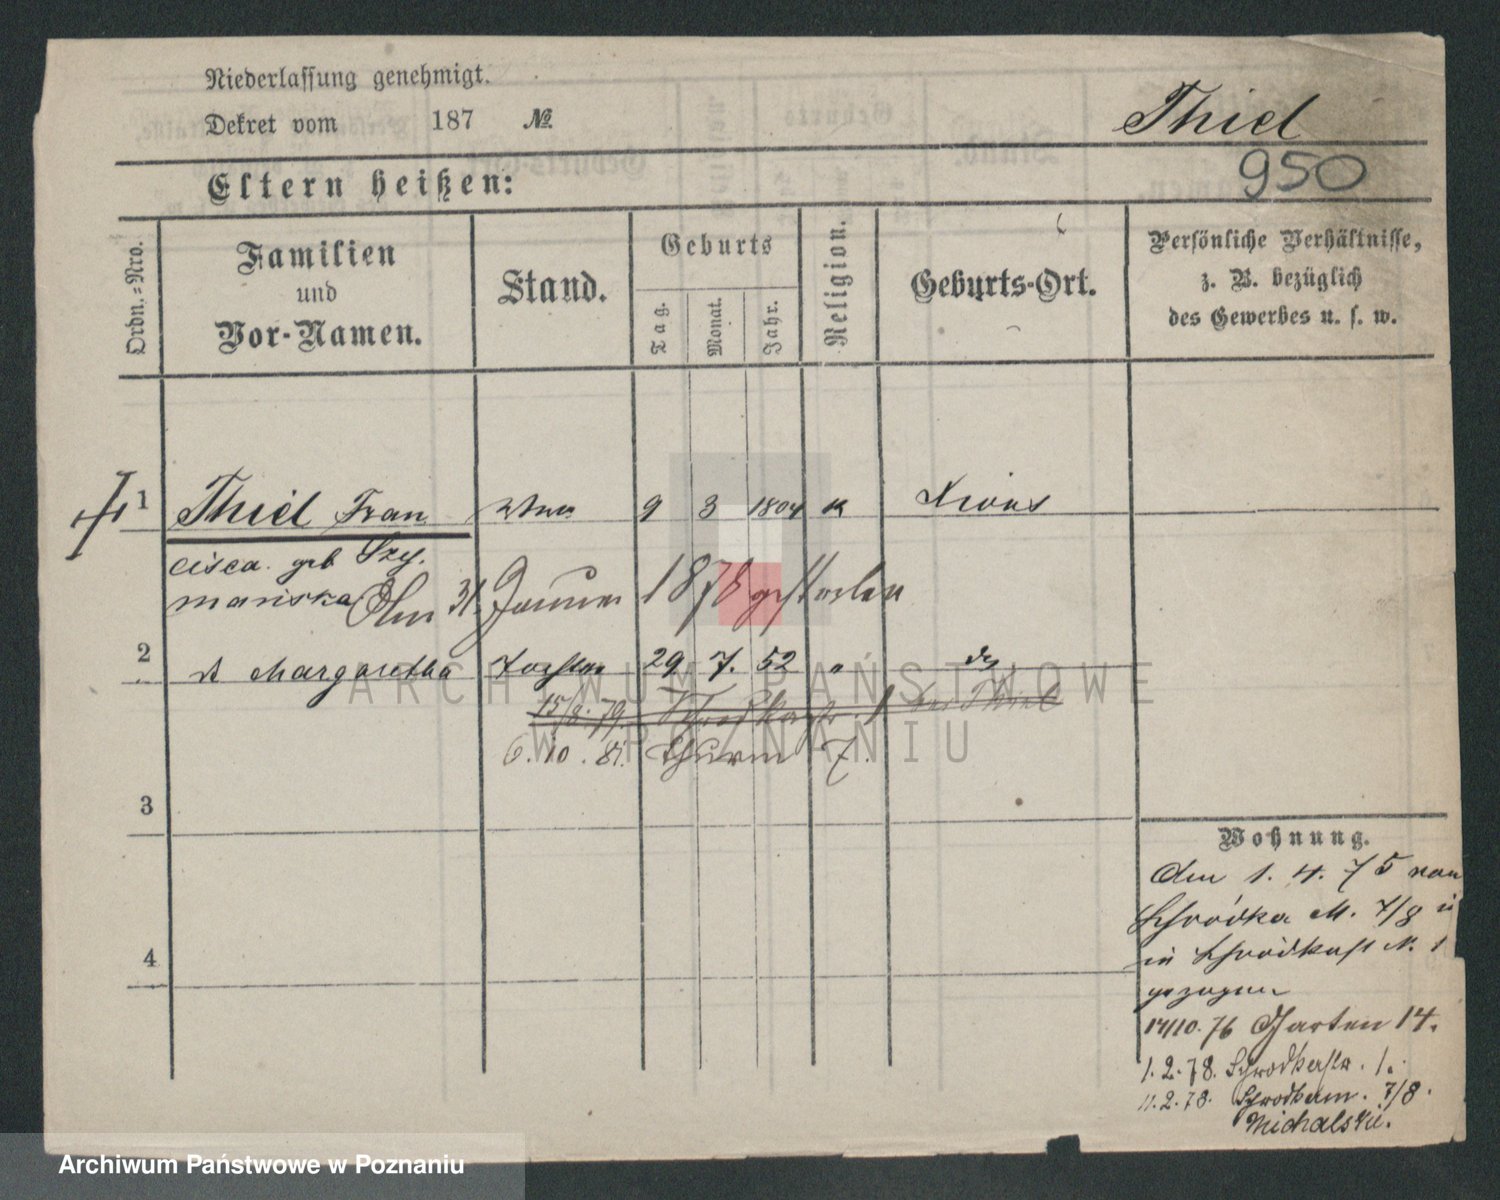 Niederlassung genehmigt.
Dekret vom 187 №
Thiel
950
Eltern heißen:
Ordn.-Nro.
Familien
und
Vor-Namen.
Stand.
Geburts
Tag.
Monat.
Jahr.
Religion.
Geburts-Ort.
Persönliche Verhältnisse,
z. B. bezüglich
des Gewerbes u. s. w.
1 Thiel Fran Wwe 9 3 1804 k Xions
cisca. geb Szy.
mańska Am 31. Januar 1878 gestorben
2 Margaretha Tochter 29 7. 52 " do
15/8. 79. Schrodkastr 1 bei Thiel
6.10.81. Thurm 7.
3
4
Wohnung.
Den 1. 4. 75 von
Schrodka M. 7/8
in Schrodkast N. 1
gezogen
14/10. 76 Garten 14.
1.2.78. Schrodkastr. 1.
11.2.78. Schrodkam. 7/8.
Michalski.
ARCHIWUM PAŃSTWOWE
W POZNANIU
Archiwum Państwowe w Poznaniu